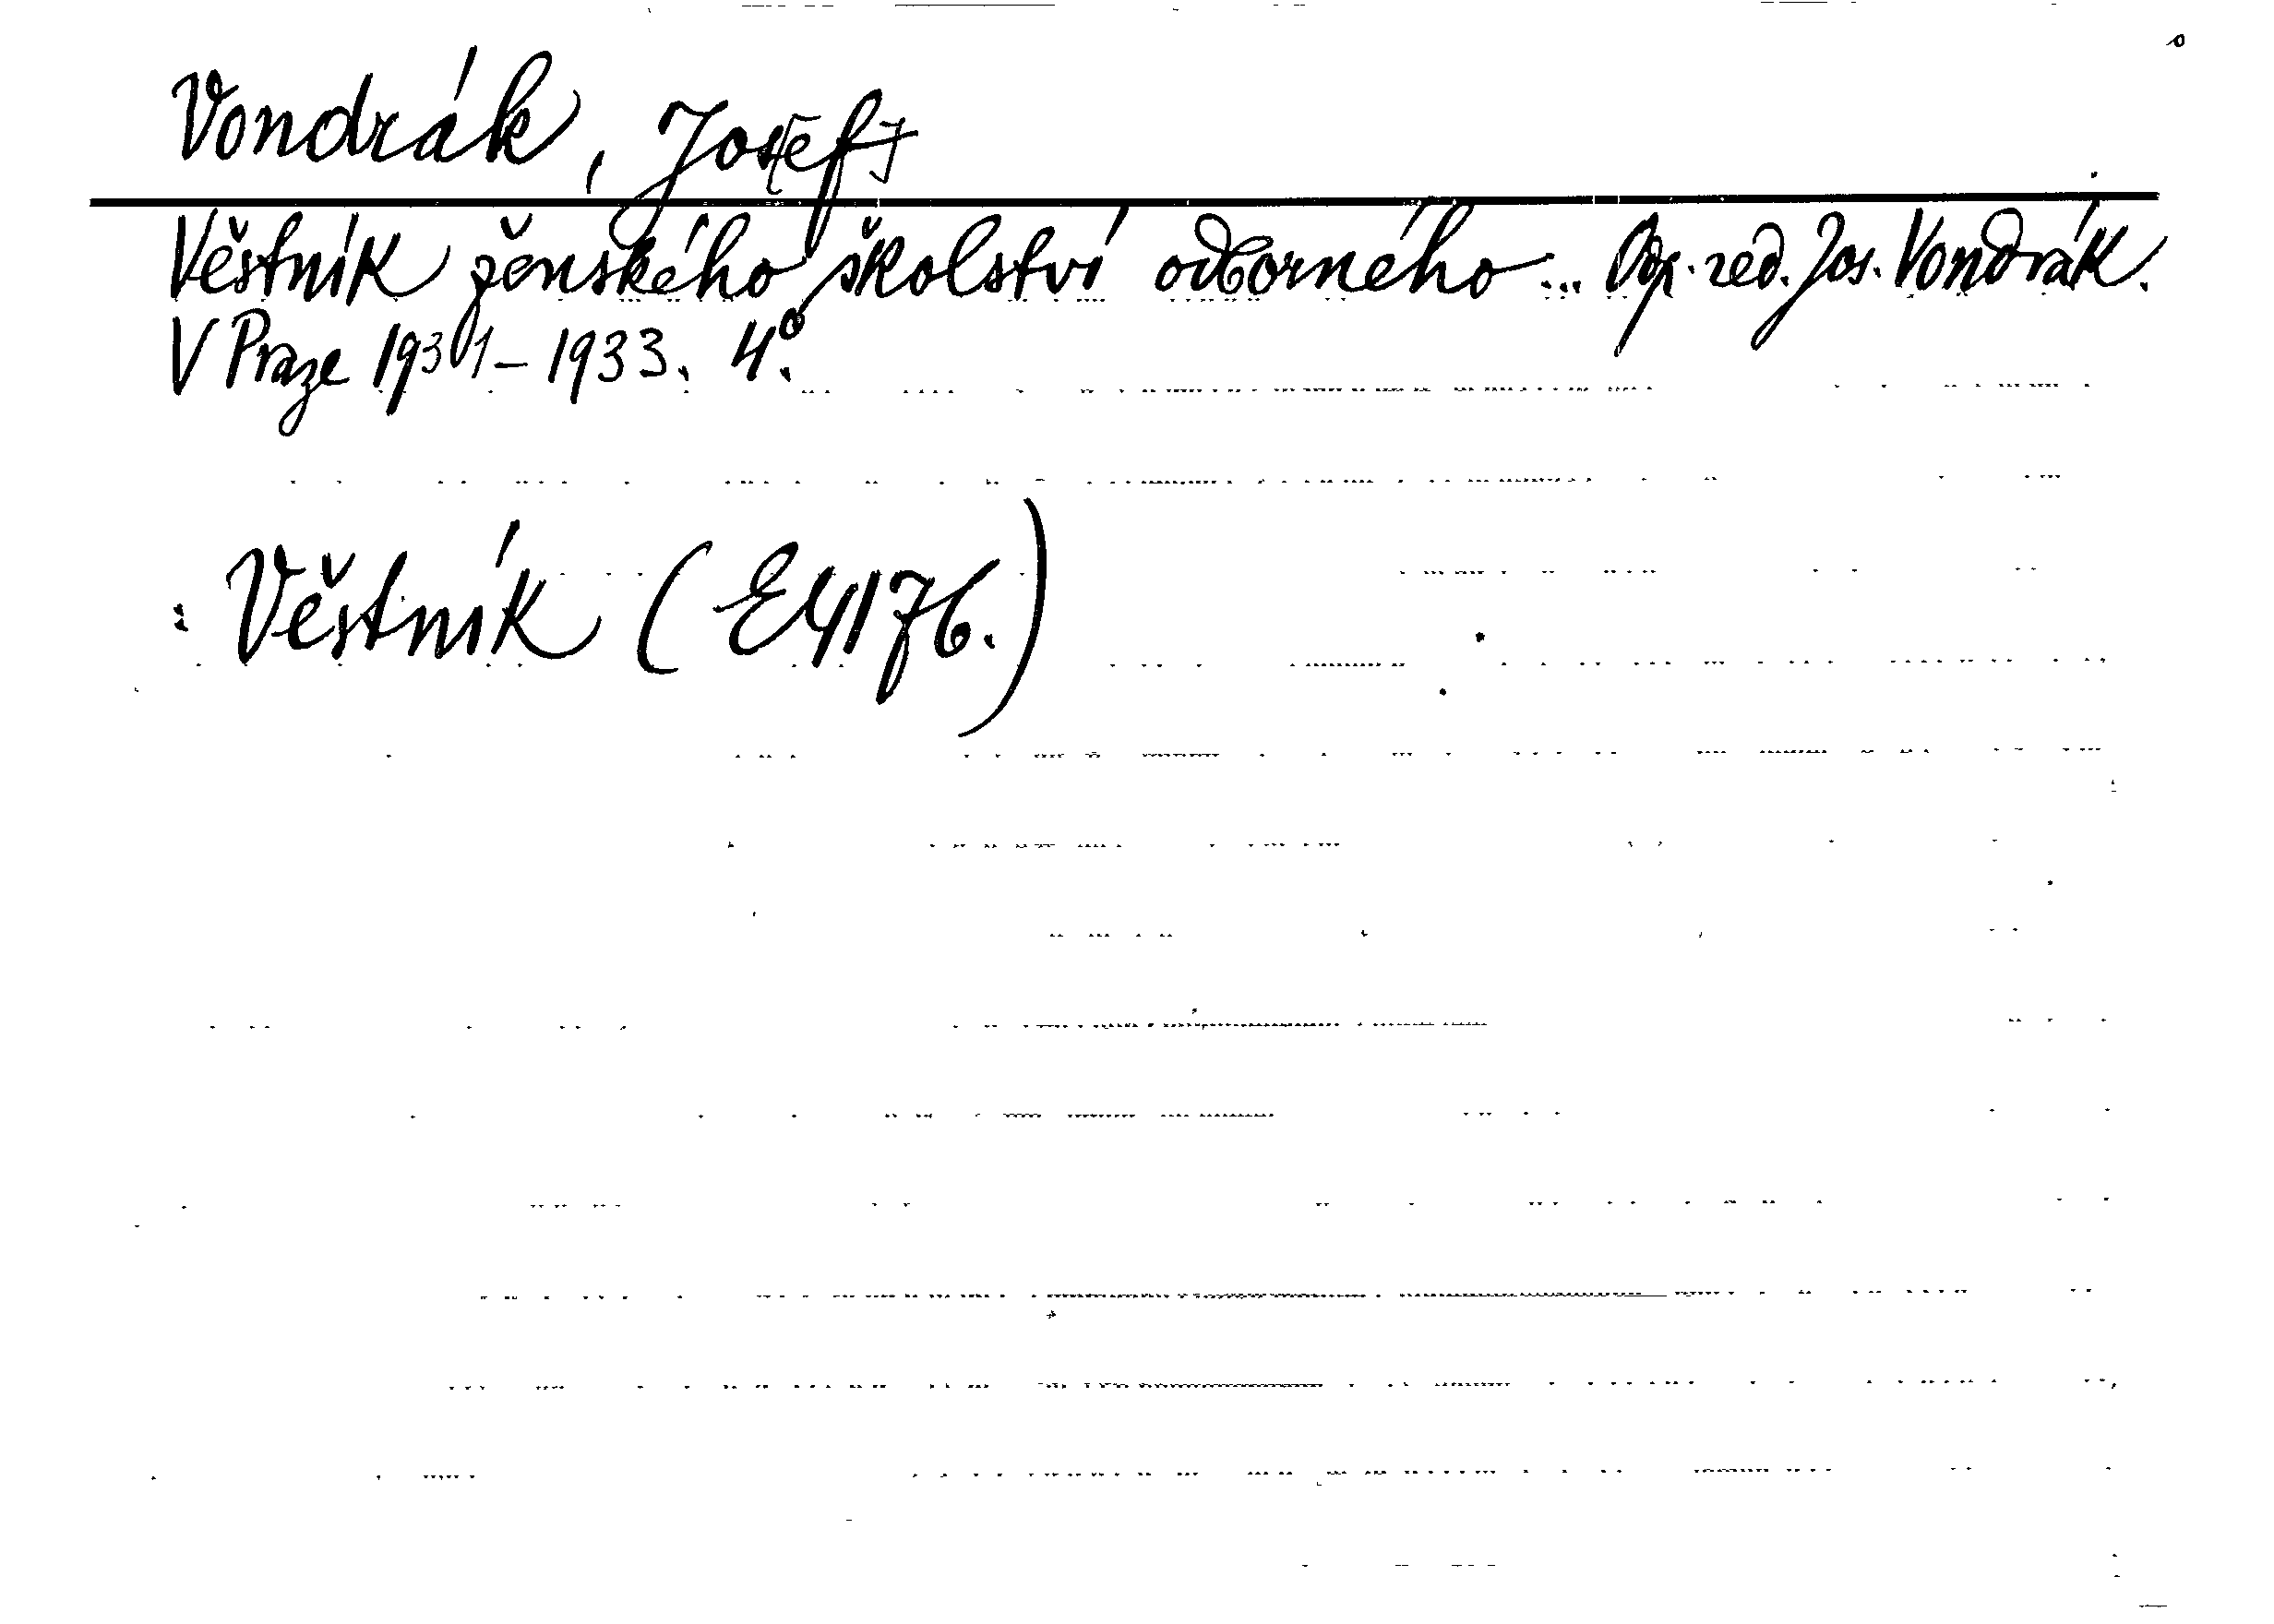 Vondrák, Jos[ef]
Věstník ženského školství odborného... Odp. red. Jos. Vondrák.
V Praze 1931–1933. 4°.
: Věstník (E4176.)